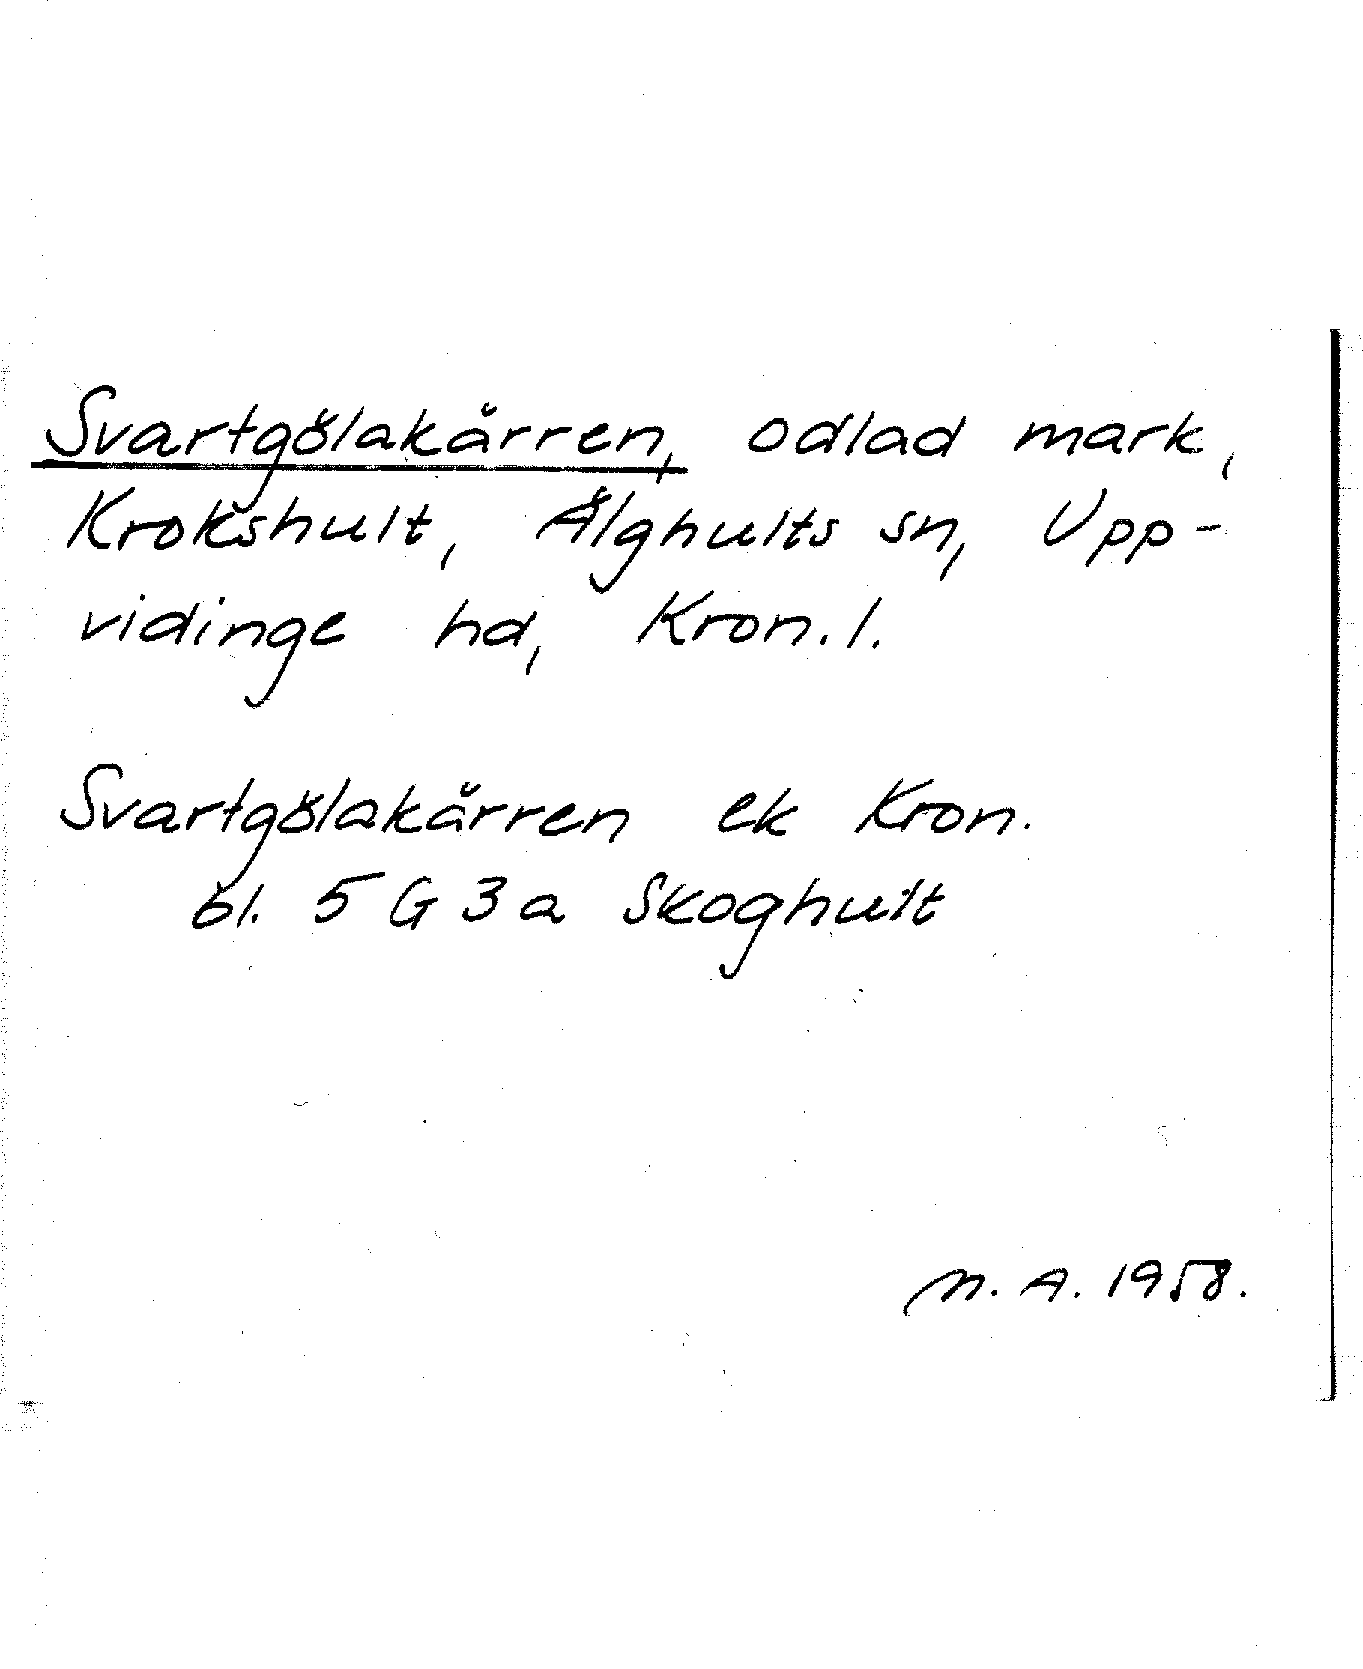 Svartgölakärren, odlad mark,
Krokshult, Älghults sn, Upp-
vidinge hd, Kron. l.
Svartgölakärren ek Kron.
bl. 5 G 3 a Skoghult
M. A. 1958.